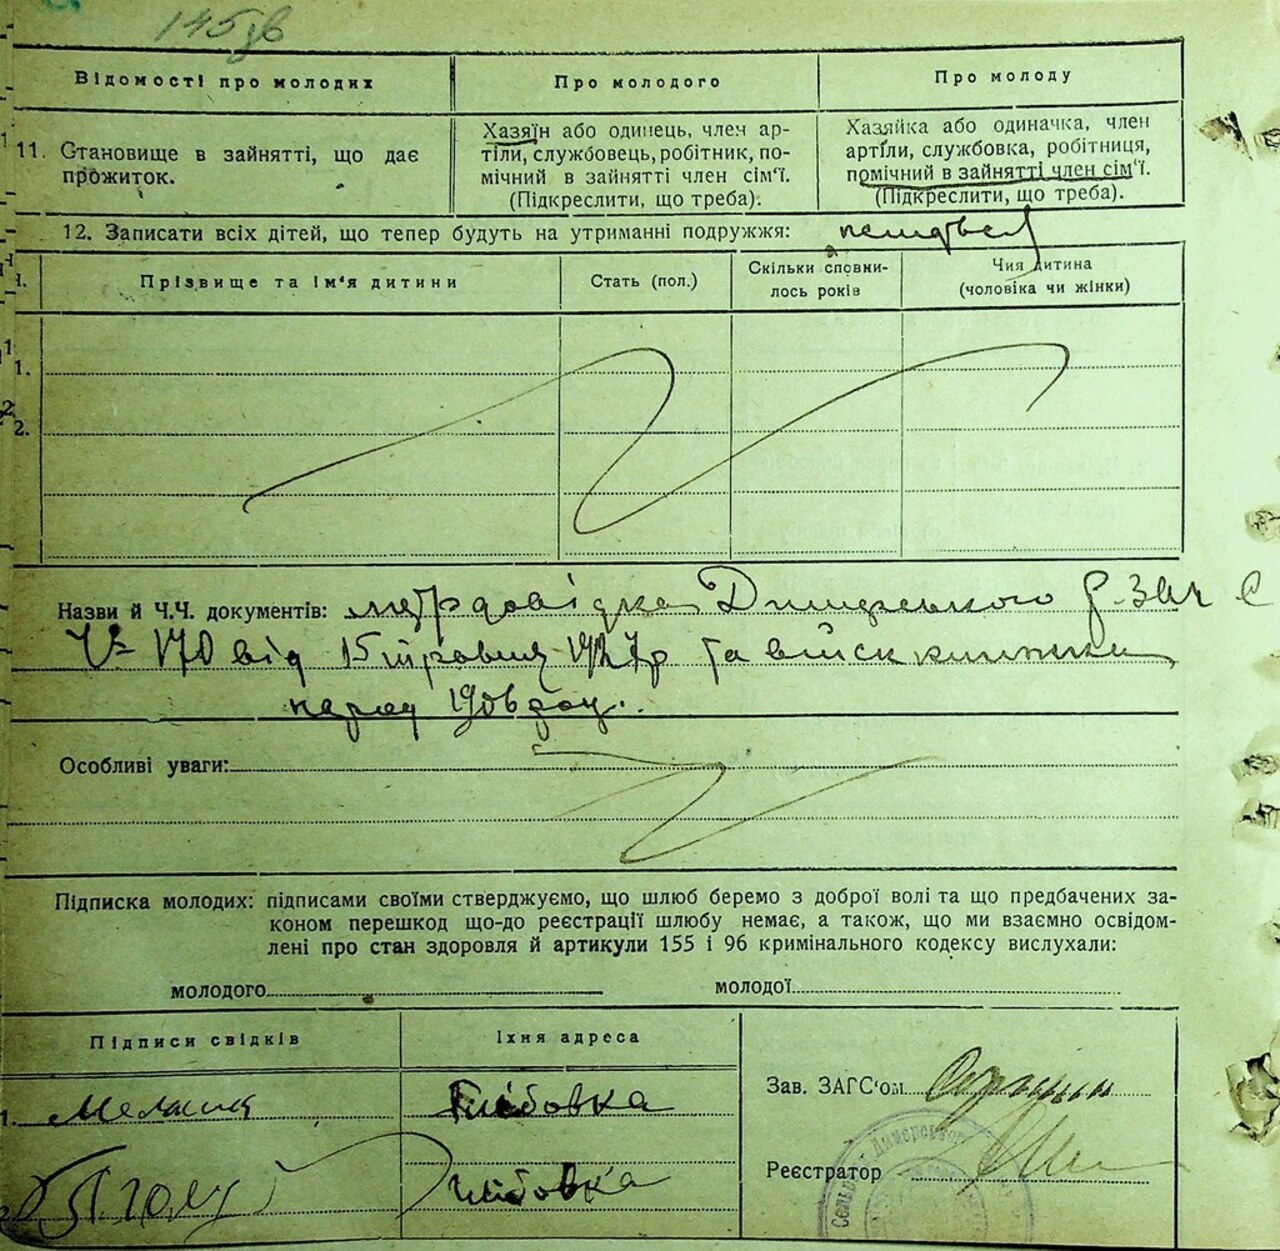 145 зв
Відомості про молодих
Про молодого
Про молоду
11. Становище в зайнятті, що дає
прожиток.
Хазяїн або одинець, член ар-
тіли, службовець, робітник, по-
мічний в зайнятті член сім'ї.
(Підкреслити, що треба).
Хазяйка або одиначка, член
артіли, службовка, робітниця,
помічний в зайнятті член сім'ї.
(Підкреслити, що треба).
12. Записати всіх дітей, що тепер будуть на утриманні подружжя:
Прізвище та ім'я дитини
Стать (пол.)
Скільки сповни-
лось років
Чия дитина
(чоловіка чи жінки)
1.
2.
Назви й Ч.Ч. документів: метр довідка Димерського
№ 170 від 15 травня 1927р та військ книжки
1906
Особливі уваги:
Підписка молодих: підписами своїми стверджуємо, що шлюб беремо з доброї волі та що предбачених за-
коном перешкод що-до реєстрації шлюбу немає, а також, що ми взаємно освідом-
лені про стан здоровля й артикули 155 і 96 кримінального кодексу вислухали:
молодого
молодої
Підписи свідків
Їхня адреса
1.
Глібовка
Глібовка
Зав. ЗАГС'ом
Реєстратор